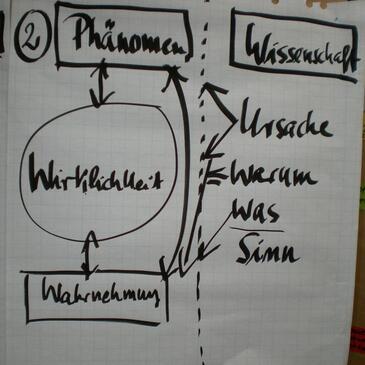 2 Phänomen
Wissenschaft
Wirklichkeit
Wahrnehmung
Ursache
Warum
Was
Sinn